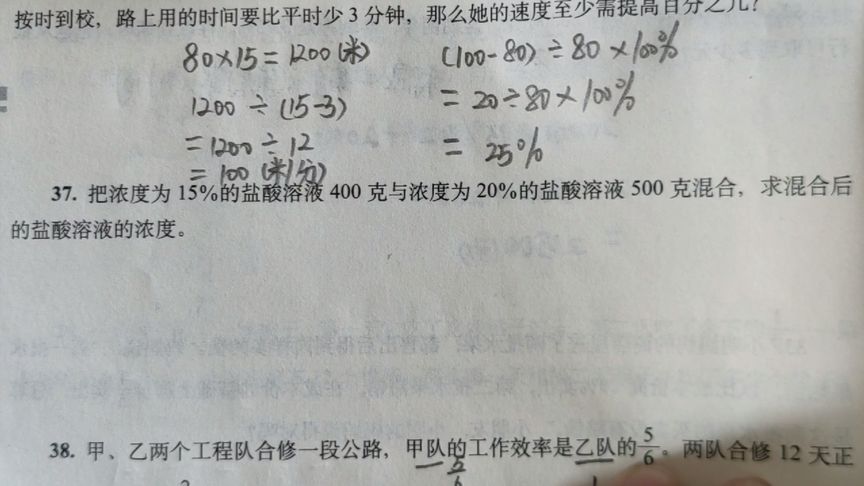 按时到校，路上用的时间要比平时少3分钟，那么她的速度至少需提高百分之几？
80×15=1200(米)
1200÷(15-3)
=1200÷12
=100(米/分)
(100-80)÷80×100%
=20÷80×100%
=25%
37. 把浓度为15%的盐酸溶液400克与浓度为20%的盐酸溶液500克混合，求混合后
的盐酸溶液的浓度。
38. 甲、乙两个工程队合修一段公路，甲队的工作效率是乙队的5/6。两队合修12天正